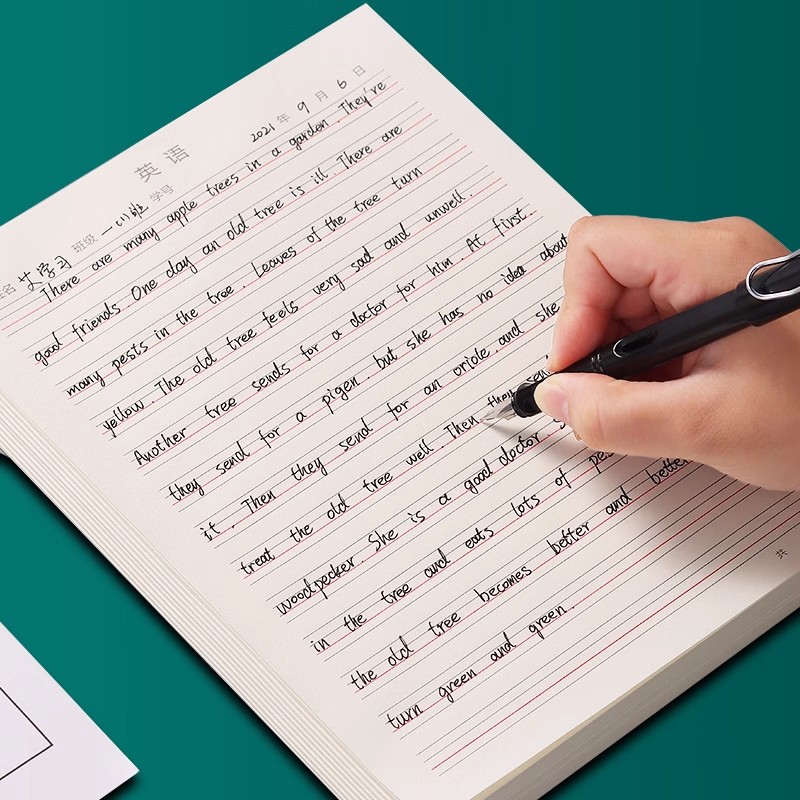 英语
2021年9月6日
姓名 艾学习 班级 一(1)班 学号
There are many apple trees in a garden. They're
good friends. One day an old tree is ill. There are
many pests in the tree. Leaves of the tree turn
yellow. The old tree feels very sad and unwell.
Another tree sends for a doctor for him. At first
they send for a pigen, but she has no idea about
it. Then they send for an oriole, and she
treat the old tree well. Then they
woodpecker. She is a good doctor
in the tree and eats lots of
the old tree becomes better and better
turn green and green.
共